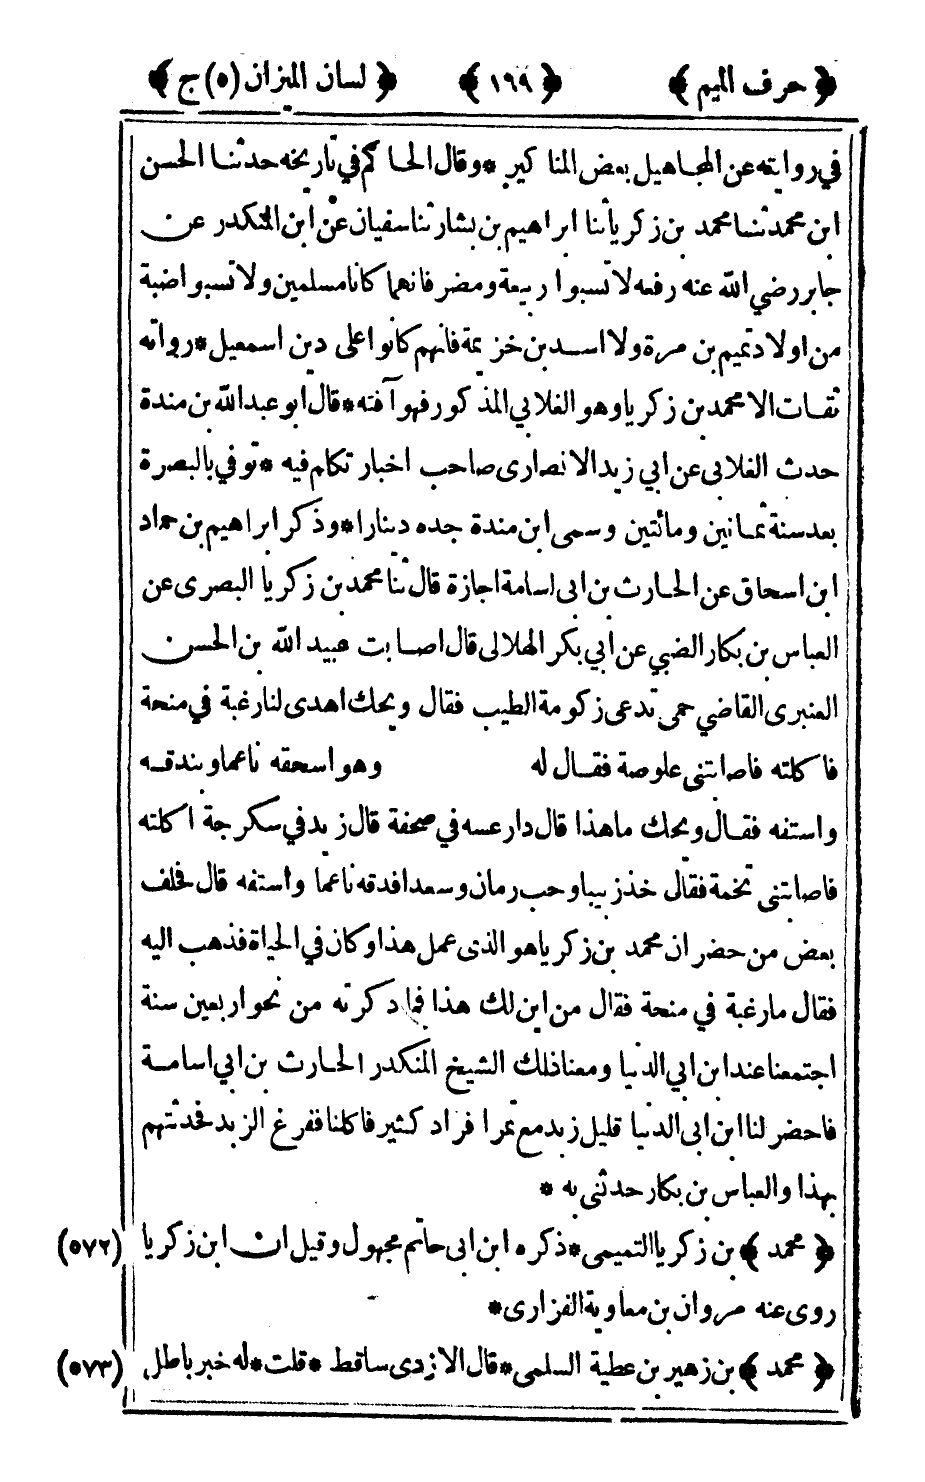 ﴿ حرف الميم ﴾ ﴿ ١٦٩ ﴾ ﴿ لسان الميزان (٥) ج ﴾
في روايته عن المجاهيل بعض المناكير * وقال الحاكم في تاريخه حدثنا الحسن
ابن محمد ثنا محمد بن زكريا ثنا ابراهيم بن بشار ثنا سفيان عن ابن المنكدر عن
جابر رضي الله عنه رفعه لا تسبوا ربيعة ومضر فانهما كانا مسلمين ولا تسبوا ضبة
من اولاد تميم بن مرة ولا اسد بن خزيمة فانهم كانوا على دين اسمعيل * رواته
ثقات الا محمد بن زكريا وهو الغلابي المذكور فهو آفته * قال ابو عبد الله بن مندة
حدث الغلابى عن ابي زيد الانصارى صاحب اخبار تكلم فيه * توفي بالبصرة
بعد سنة ثمانين ومائتين وسمى ابن مندة جده دينارا * وذكر ابراهيم بن حماد
ابن اسحاق عن الحارث بن ابى اسامة اجازة قال ثنا محمد بن زكريا البصرى عن
العباس بن بكار الضبي عن ابي بكر الهلالى قال اصابت عبيد الله بن الحسن
العنبرى القاضي حمى تدعى زكومة الطيب فقال ويحك اهدى لنا رغبة في منحة
فاكلته فاصابتنى علوصة فقال له وهو اسحقه ناعما وبندقه
واستفه فقال ويحك ما هذا قال دارعسه في صحفة قال زبد في سكرجة اكلته
فاصابتنى تخمة فقال خذ زبيبا وحب رمان وسعد افدقه ناعما واستفه قال فحلف
بعض من حضر ان محمد بن زكريا هو الذى عمل هذا وكان في الحياة فذهب اليه
فقال ما رغبة في منحة فقال من اين لك هذا فما ذكرته من نحو اربعين سنة
اجتمعنا عند ابن ابي الدنيا ومعنا ذلك الشيخ المنكدر الحارث بن ابي اسامة
فاحضر لنا ابن ابى الدنيا قليل زبد مع تمر افراد كثير فاكلنا ففرغ الزبد فحدثتهم
بهذا والعباس بن بكار حدثنى به *
﴿ محمد ﴾ بن زكريا التميمى * ذكره ابن ابى حاتم مجهول وقيل ان ابن زكريا (٥٧٢)
روى عنه مروان بن معاوية الفزارى *
﴿ محمد ﴾ بن زهير بن عطية السلمى * قال الازدى ساقط * قلت * له خبر باطل (٥٧٣)